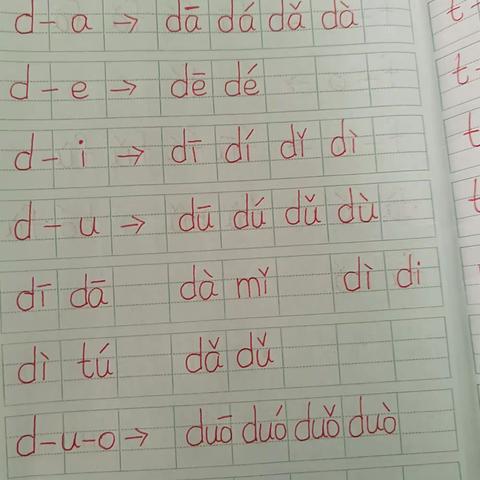 d-a→ dā dá dǎ dà
d-e→ dē dé
d-i→ dī dí dǐ dì
d-u→ dū dú dǔ dù
dī dā dà mǐ dì di
dì tú dǎ dǔ
d-u-o→ duō duó duǒ duò